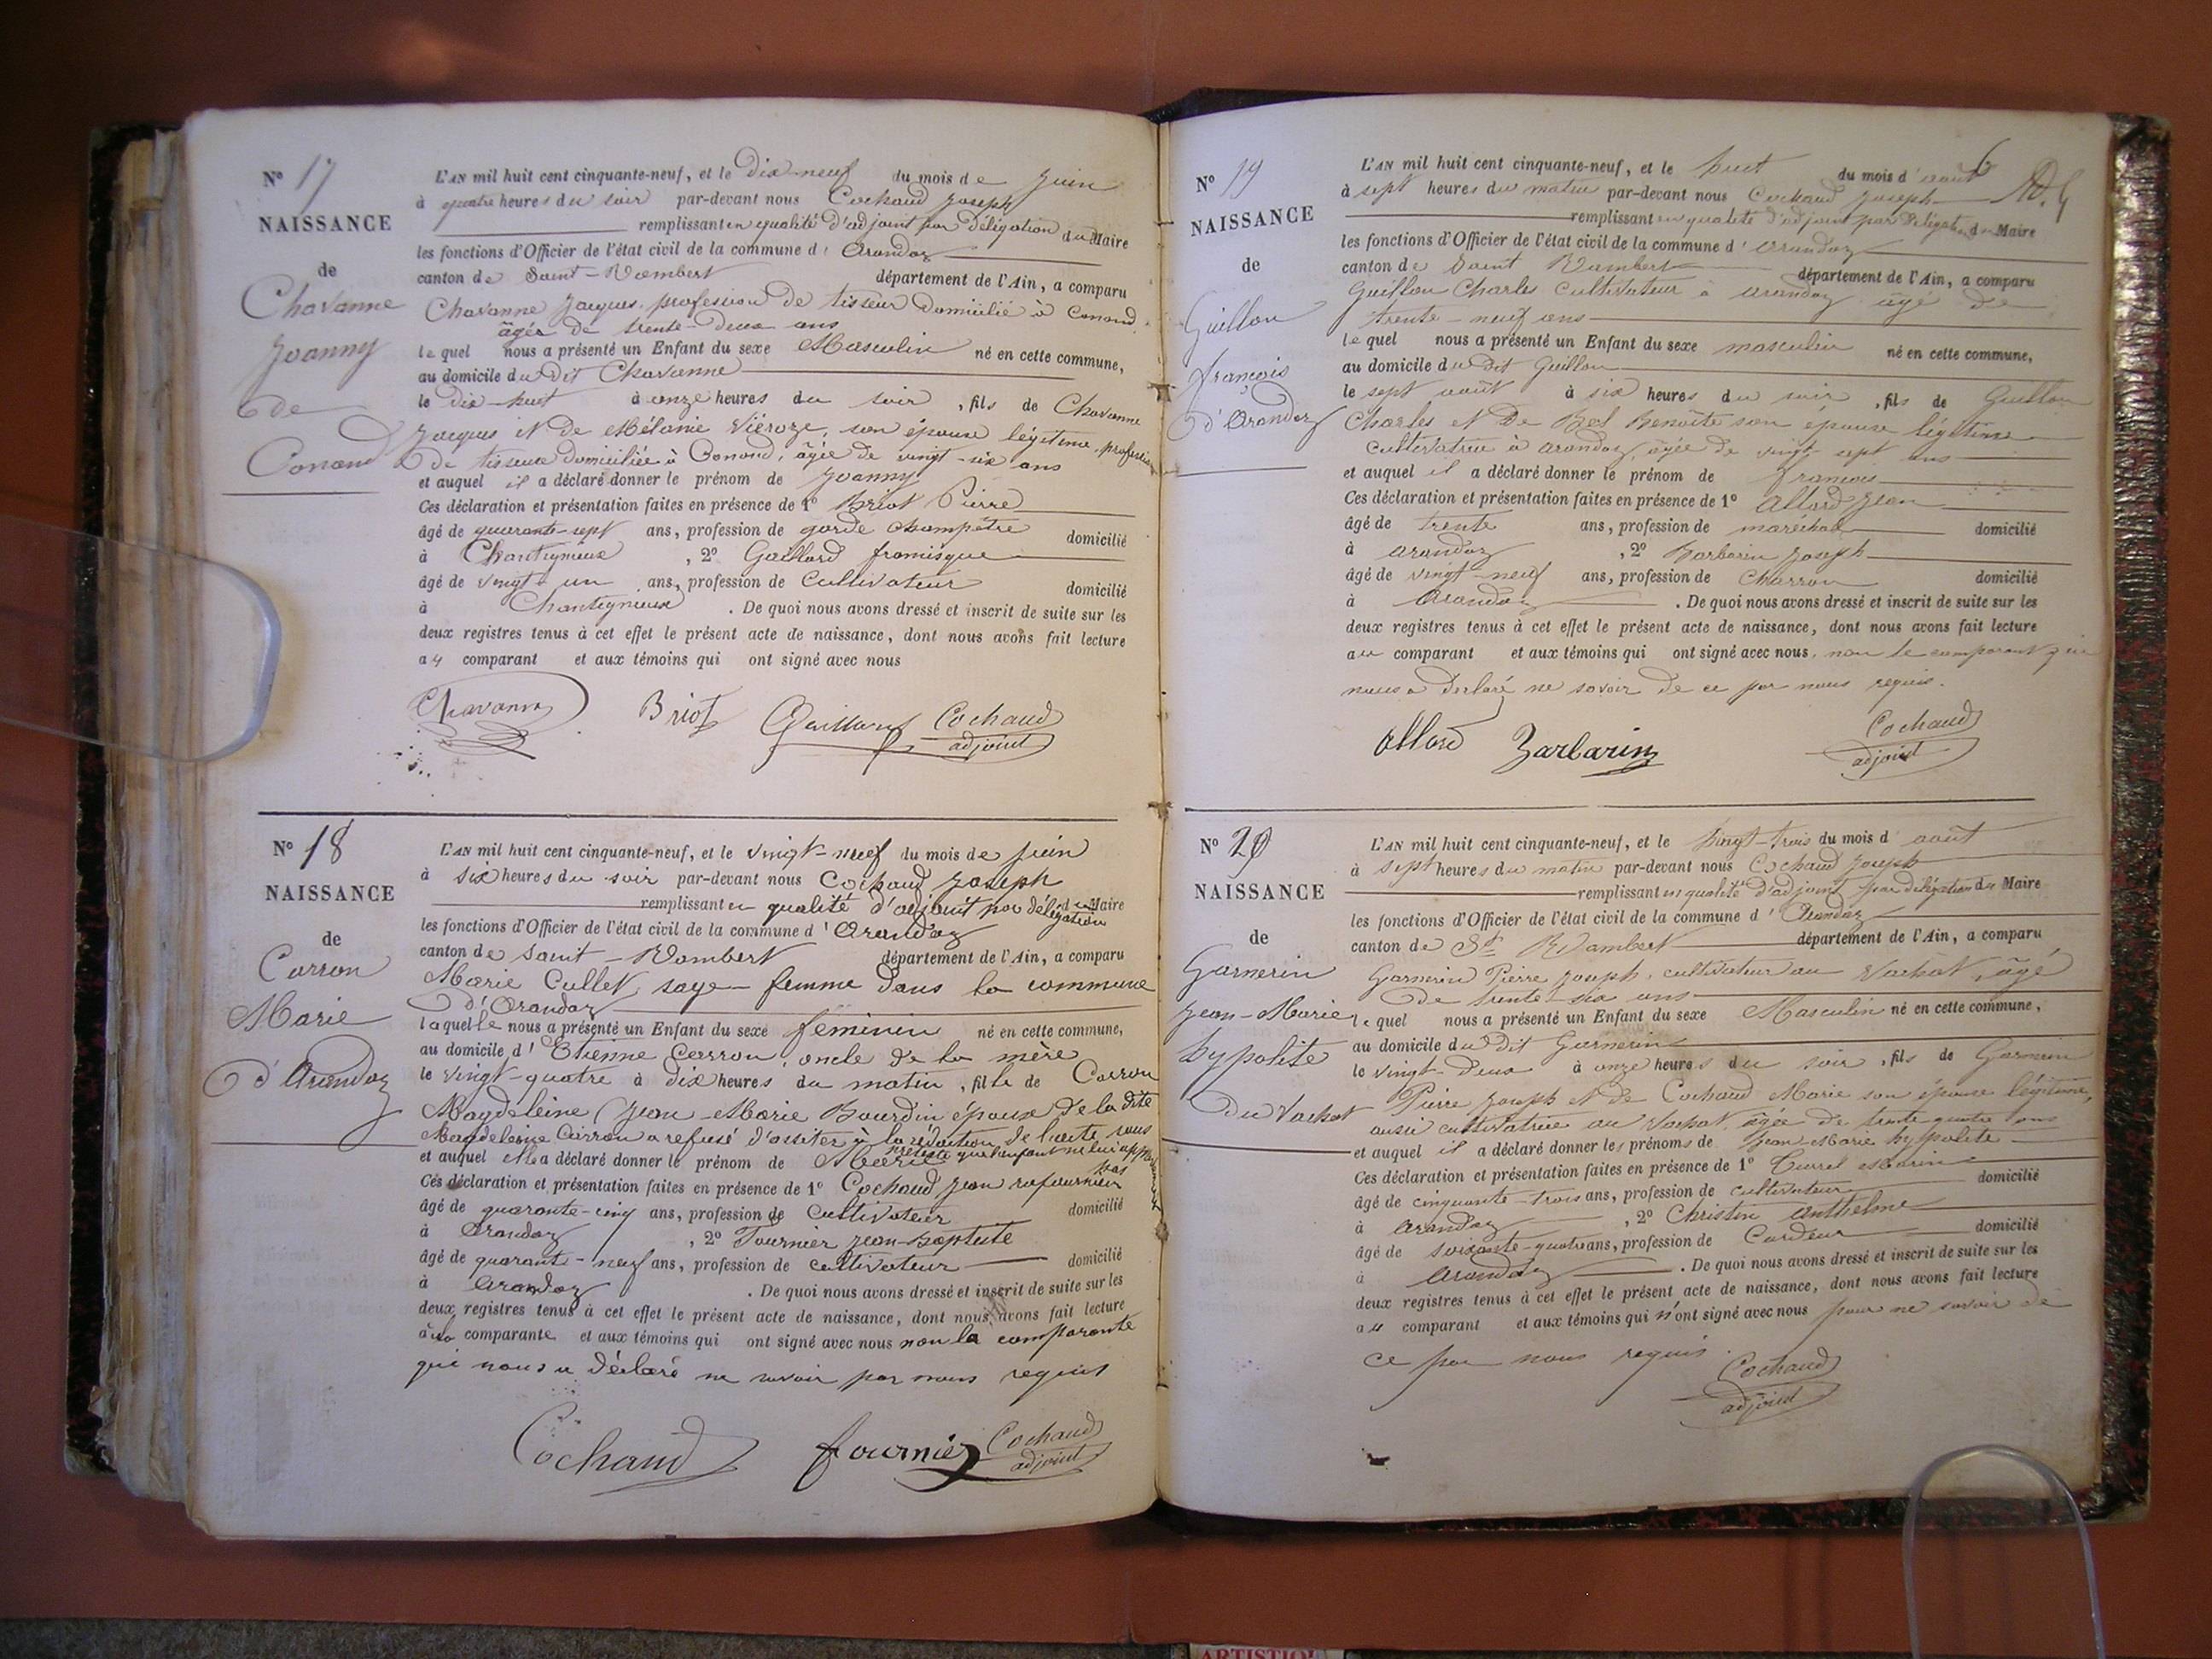 N° 17
NAISSANCE
de
Chavanne
Joanny
de
Conand
L'AN mil huit cent cinquante-neuf, et le Dix-neuf du mois de Juin
à quatre heures du soir par-devant nous Cochaud Joseph
remplissant en qualité d'adjoint par Délégation du Maire
les fonctions d'Officier de l'état civil de la commune d' Arandaz
canton de Saint-Rambert département de l'Ain, a comparu
Chavanne Jacques, profession de tisseur Domicilié à Conand,
âgé de trente-deux ans
lequel nous a présenté un Enfant du sexe Masculin né en cette commune,
au domicile du Dit Chavanne
le Dix-huit à onze heures du soir, fils de Chavanne
Jacques et de Mélanie son épouse légitime, profession
de tisseuse domiciliée à Conand, âgée de vingt-six ans
et auquel il a déclaré donner le prénom de Joanny
Ces déclaration et présentation faites en présence de 1° Briot Pierre
âgé de quarante-sept ans, profession de garde champêtre domicilié
à Chantignieux, 2° Gaillard
âgé de vingt-un ans, profession de Cultivateur domicilié
à Chantignieux. De quoi nous avons dressé et inscrit de suite sur les
deux registres tenus à cet effet le présent acte de naissance, dont nous avons fait lecture
au comparant et aux témoins qui ont signé avec nous
Chavanne Briot Gaillard Cochaud
adjoint
N° 18
NAISSANCE
de
Carron
Marie
d'Arandaz
L'AN mil huit cent cinquante-neuf, et le vingt-neuf du mois de juin
à six heures du soir par-devant nous Cochaud Joseph
remplissant en qualité d'adjoint par délégation du Maire
les fonctions d'Officier de l'état civil de la commune d' Arandaz
canton de Saint-Rambert département de l'Ain, a comparu
Marie Cullet, sage-femme dans la commune
d'Arandaz
laquelle nous a présenté un Enfant du sexe féminin né en cette commune,
au domicile d' Etienne Carron, oncle de la mère
le vingt-quatre à dix heures du matin, fille de Carron
Magdeleine (Jean-Marie Bourdin époux de la dite
Magdeleine Carron a refusé d'assiter à la rédaction de l'acte sous
prétexte que l'enfant ne lui appartenait pas
et auquel elle a déclaré donner le prénom de Marie
Ces déclaration et présentation faites en présence de 1° Cochaud Jean
âgé de quarante-cinq ans, profession de Cultivateur domicilié
à Arandaz, 2° Fournier Jean-Baptiste
âgé de quarante-neuf ans, profession de cultivateur domicilié
à Arandaz. De quoi nous avons dressé et inscrit de suite sur les
deux registres tenus à cet effet le présent acte de naissance, dont nous avons fait lecture
à la comparante et aux témoins qui ont signé avec nous non la comparante
qui nous a déclaré ne savoir par nous requis
Cochaud Fournier Cochaud
adjoint
6
N° 19
NAISSANCE
de
Guillon
françois
d'Arandaz
L'AN mil huit cent cinquante-neuf, et le huit du mois d'août
à sept heures du matin par-devant nous Cochaud Joseph
remplissant en qualité d'adjoint par Délégation du Maire
les fonctions d'Officier de l'état civil de la commune d' Arandaz
canton de Saint Rambert département de l'Ain, a comparu
Guillon Charles Cultivateur à Arandaz âgé de
trente-neuf ans
lequel nous a présenté un Enfant du sexe masculin né en cette commune,
au domicile du dit Guillon
le sept août à six heures du soir, fils de Guillon
Charles et De Bel Benoîte son épouse légitime
cultivatrice à Arandaz, âgée de vingt-sept ans
et auquel il a déclaré donner le prénom de françois
Ces déclaration et présentation faites en présence de 1° Allard Jean
âgé de trente ans, profession de maréchal domicilié
à Arandaz, 2° Barbarin Joseph
âgé de vingt-neuf ans, profession de Charron domicilié
à Arandaz. De quoi nous avons dressé et inscrit de suite sur les
deux registres tenus à cet effet le présent acte de naissance, dont nous avons fait lecture
au comparant et aux témoins qui ont signé avec nous, non le comparant qui
nous a déclaré ne savoir de ce par nous requis.
Allard Barbarin Cochaud
adjoint
N° 20
NAISSANCE
de
Garnerin
Jean-Marie
hypolite
du Vachat
L'AN mil huit cent cinquante-neuf, et le vingt-trois du mois d' août
à sept heures du matin par-devant nous Cochaud Joseph
remplissant en qualité d'adjoint par délégation du Maire
les fonctions d'Officier de l'état civil de la commune d' Arandaz
canton de St Rambert département de l'Ain, a comparu
Garnerin Pierre Joseph, cultivateur au Vachat, âgé
de trente-six ans
lequel nous a présenté un Enfant du sexe Masculin né en cette commune,
au domicile du dit Garnerin
le vingt-deux à onze heures du soir, fils de Garnerin
Pierre Joseph et de Cochaud Marie son épouse légitime,
aussi cultivatrice au Vachat, âgée de trente quatre ans
et auquel il a déclaré donner les prénoms de Jean-Marie hypolite
Ces déclaration et présentation faites en présence de 1°
âgé de cinquante-trois ans, profession de cultivateur domicilié
à Arandaz, 2° Christin Anthelme
âgé de soixante-quatre ans, profession de Cardeur domicilié
à Arandaz. De quoi nous avons dressé et inscrit de suite sur les
deux registres tenus à cet effet le présent acte de naissance, dont nous avons fait lecture
au comparant et aux témoins qui n'ont signé avec nous pour ne savoir de
ce par nous requis.
Cochaud
adjoint